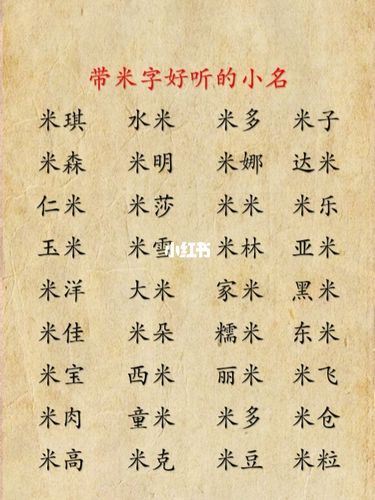 带米字好听的小名
米琪 水米 米多 米子
米森 米明 米娜 达米
仁米 米莎 米米 米乐
玉米 米雪 米林 亚米
小红书
米洋 大米 家米 黑米
米佳 米朵 糯米 东米
米宝 西米 丽米 米飞
米肉 童米 米多 米仓
米高 米克 米豆 米粒